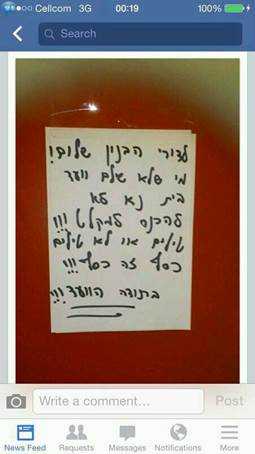 Cellcom 3G 00:19 100%
Search
לדורי הבנין שלום!
מי שלא שלם וועד
בית נא לא
להכנס למקלט!!!
טילים או לא טילים
כסף זה כסף!!!
בתודה הוועד!!!
Write a comment... Post
News Feed Requests Messages Notifications More